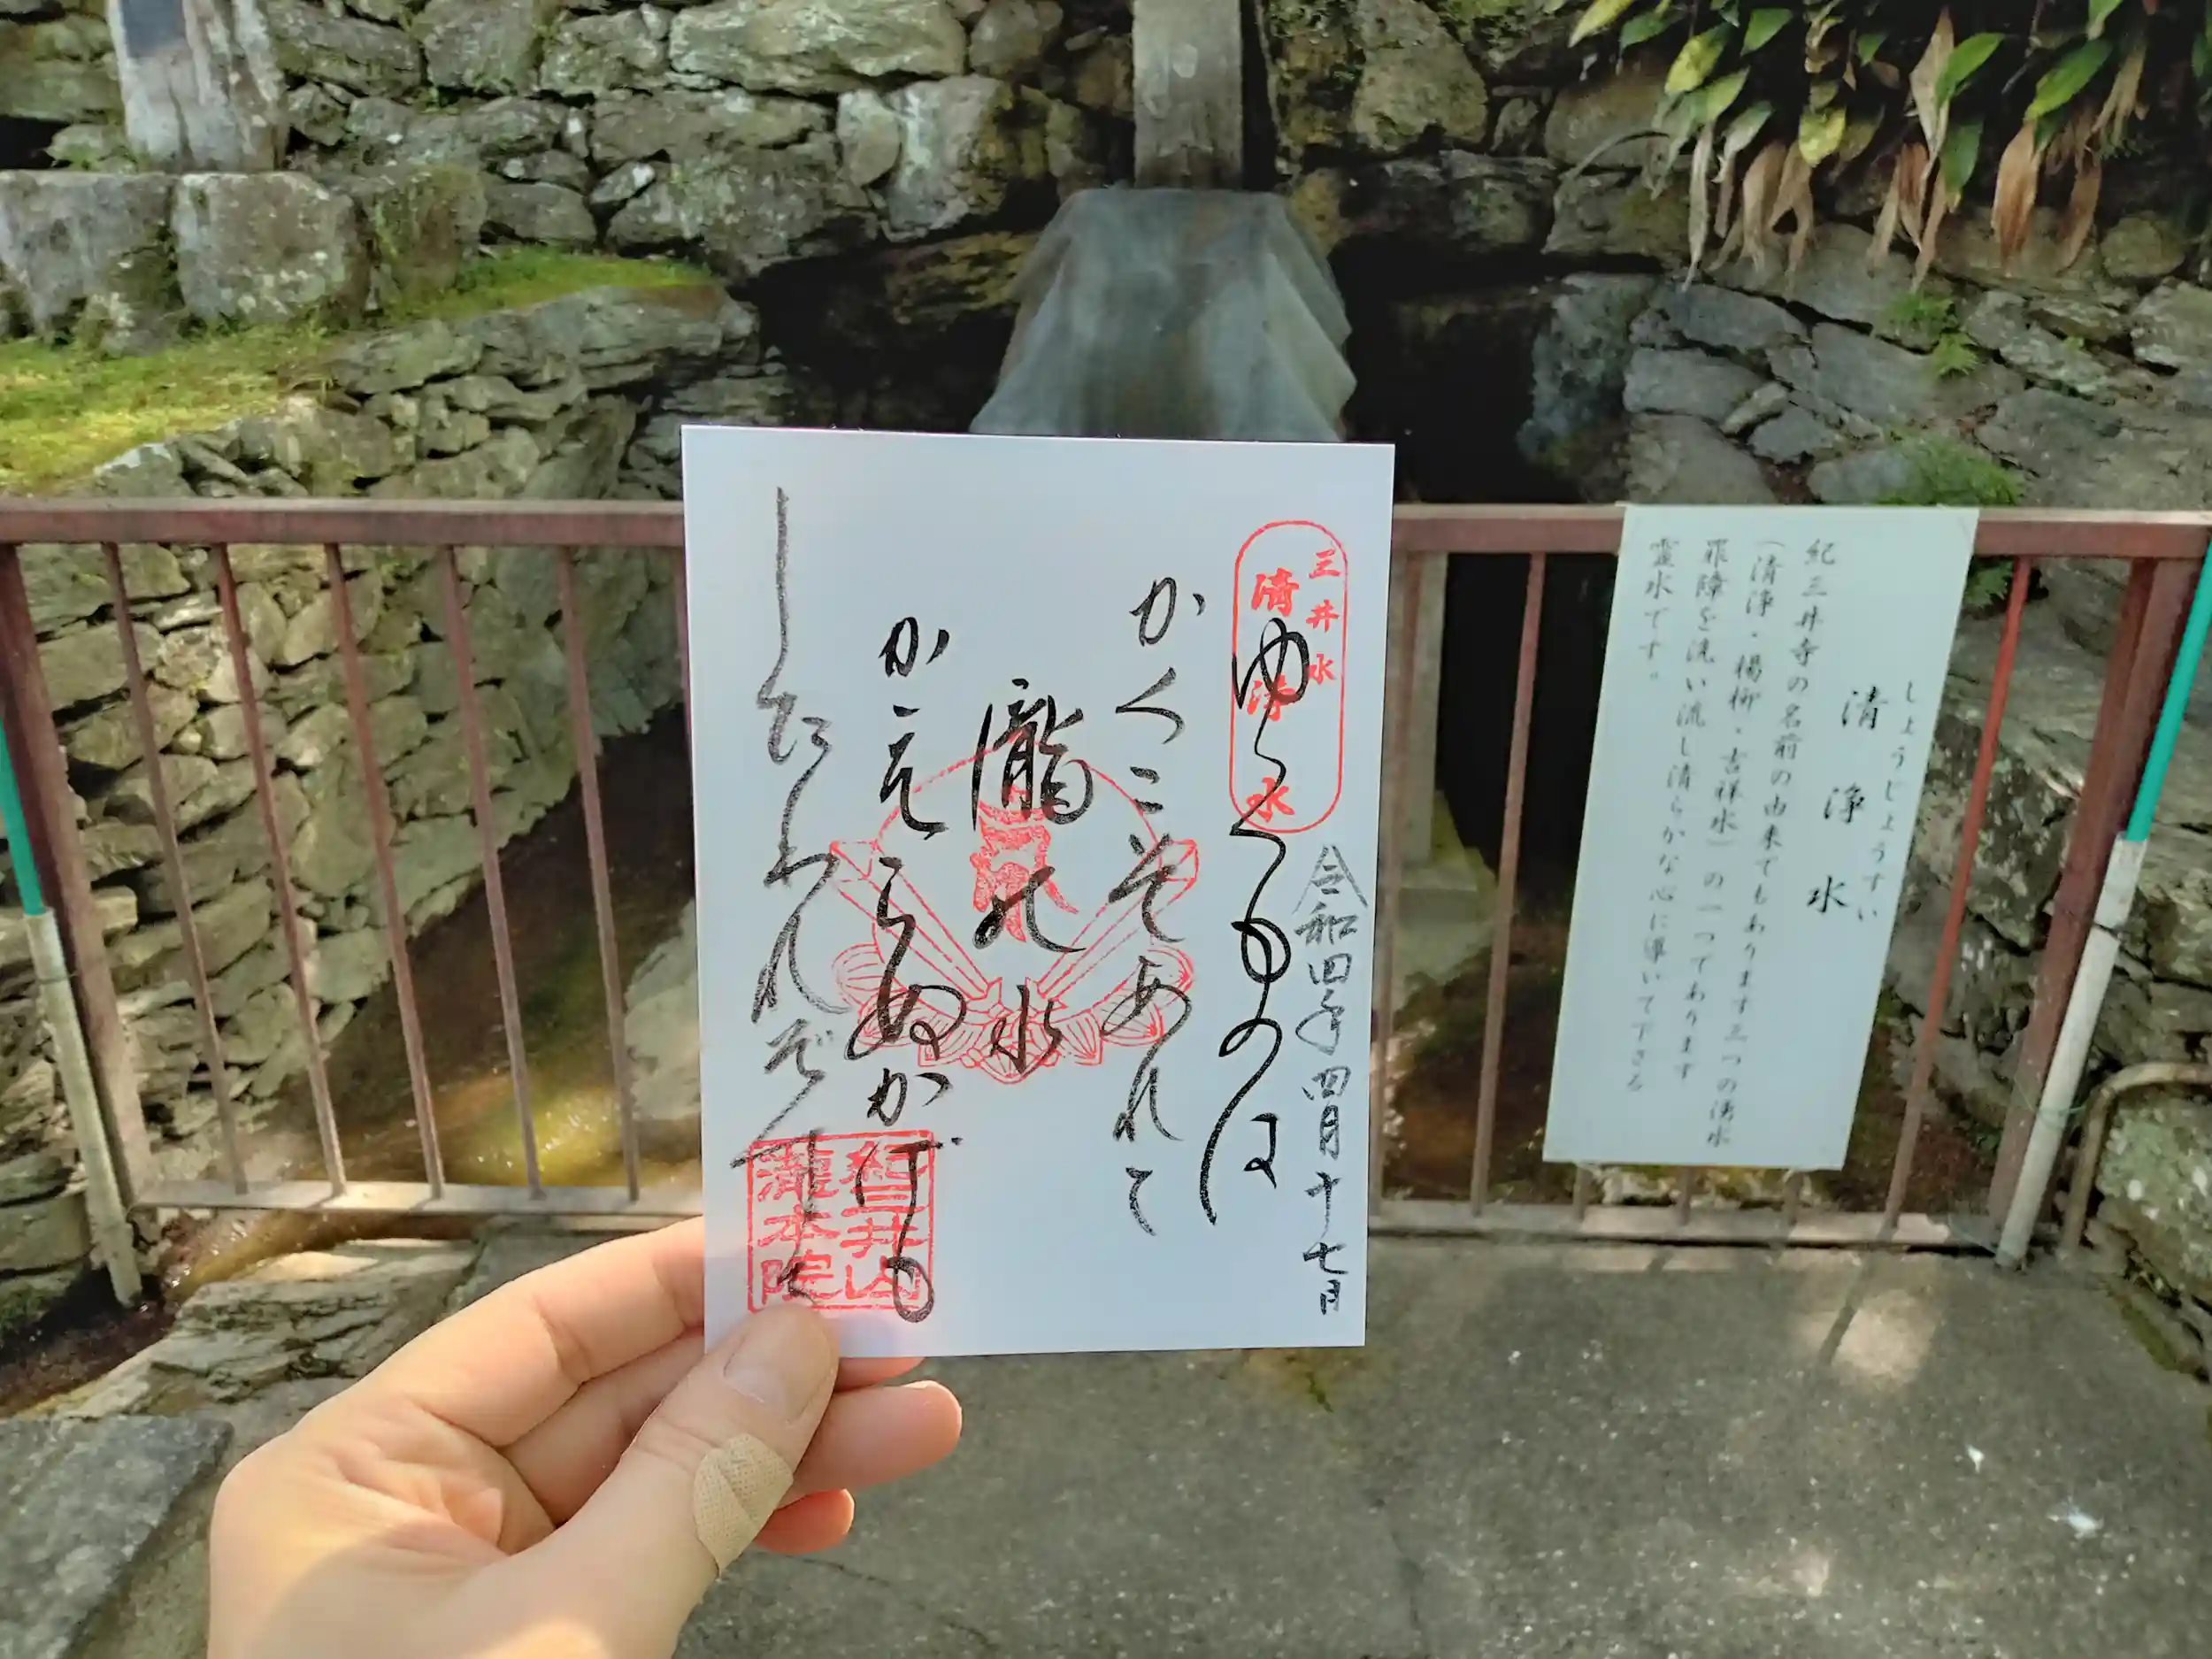 三井水
清浄水
令和四年四月十七日
ゆくものは
かくこそあれて
瀧の水
かえらぬかげも
したわれぞ
紀三井山
瀧本院
しょうじょうすい
清浄水
紀三井寺の名前の由来でもあります三つの湧水
(清浄・楊柳・吉祥水)の一つであります
罪障を洗い流し清らかな心に導いて下さる
霊水です。